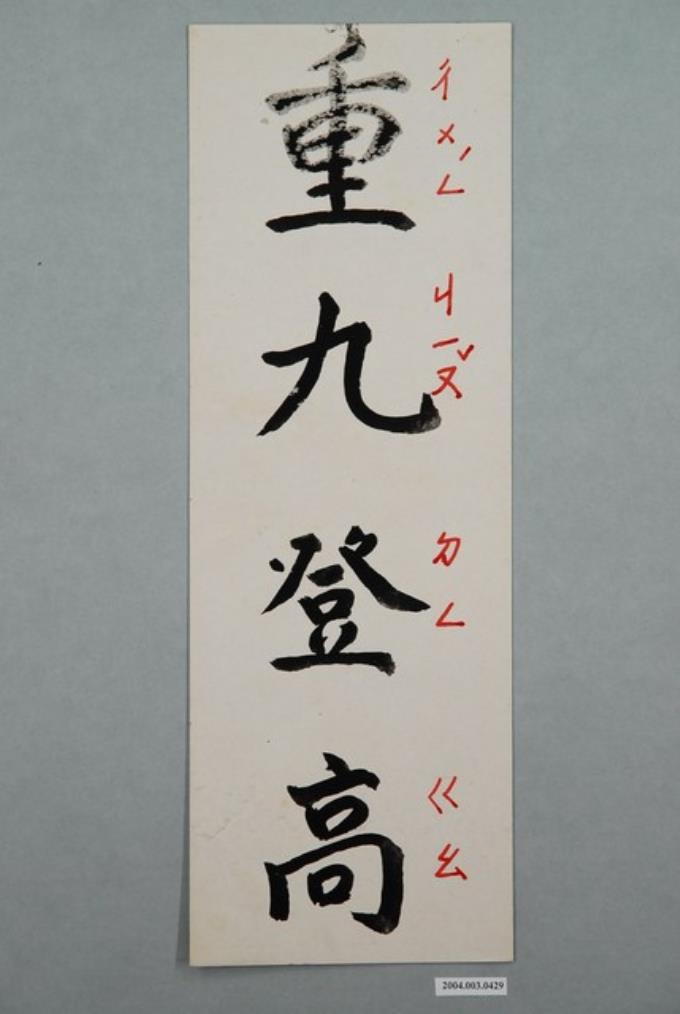 重九登高
ㄔㄨㄥˊ
ㄐㄧㄡˇ
ㄉㄥ
ㄍㄠ
2004.003.0429